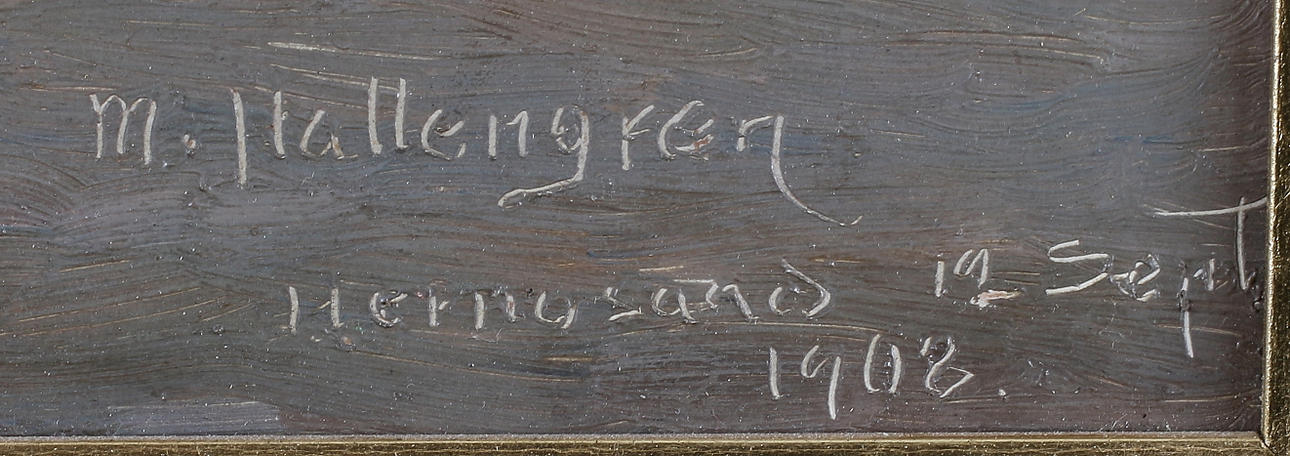 M. Hallengren
Hernösand 12 Sept
1908.